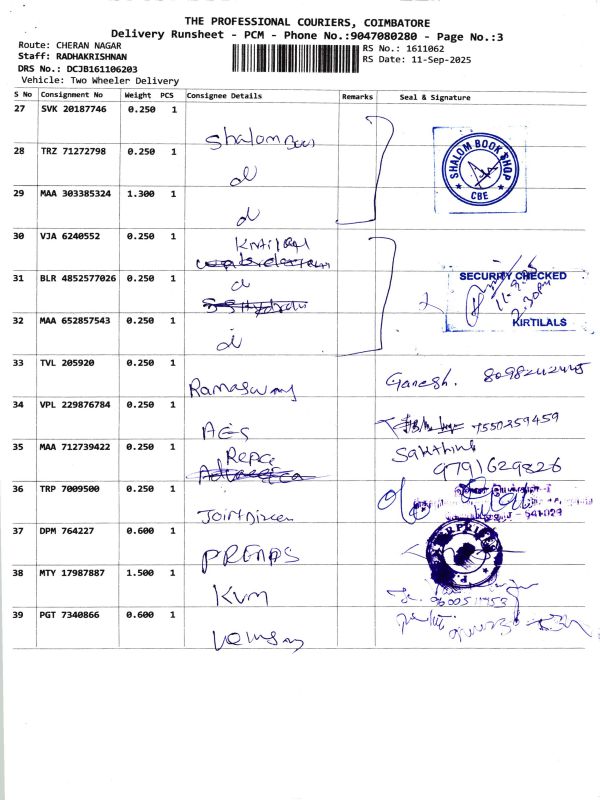 THE PROFESSIONAL COURIERS, COIMBATORE
Delivery Runsheet - PCM - Phone No.:9047080280 - Page No.:3
Route: CHERAN NAGAR
RS No.: 1611062
Staff: RADHAKRISHNAN
RS Date: 11-Sep-2025
DRS No.: DCJB161106203
Vehicle: Two Wheeler Delivery
S No Consignment No Weight PCS Consignee Details Remarks Seal & Signature
27 SVK 20187746 0.250 1 Shalom
SHALOM BOOK SHOP
CBE
28 TRZ 71272798 0.250 1 d
29 MAA 303385324 1.300 1 d
30 VJA 6240552 0.250 1 Kirtilal
31 BLR 4852577026 0.250 1 d
SECURITY CHECKED
11.9.25
2.30pm
KIRTILALS
32 MAA 652857543 0.250 1 d
33 TVL 205920 0.250 1 Ramaswamy Ganesh.
34 VPL 229876784 0.250 1 AES 7550259459
35 MAA 712739422 0.250 1 Repa Sakthivel
9791629826
36 TRP 7009500 0.250 1
37 DPM 764227 0.600 1
38 MTY 17987887 1.500 1 Kvm
39 PGT 7340866 0.600 1